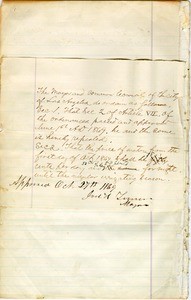 The Mayor and Common Council of the City
of Los Angeles do ordain as follows
Sec. 1. That Sec 2 of Article VII. of
the ordinances passed and approved
June 1st AD 1869, be and the same
is hereby repealed.
Sec 2. That the price of water from the
first day of
cents per day and the same for night
until the regular irrigating season.
Approved Oct. 27th 1869
Joel H Turner
Mayor